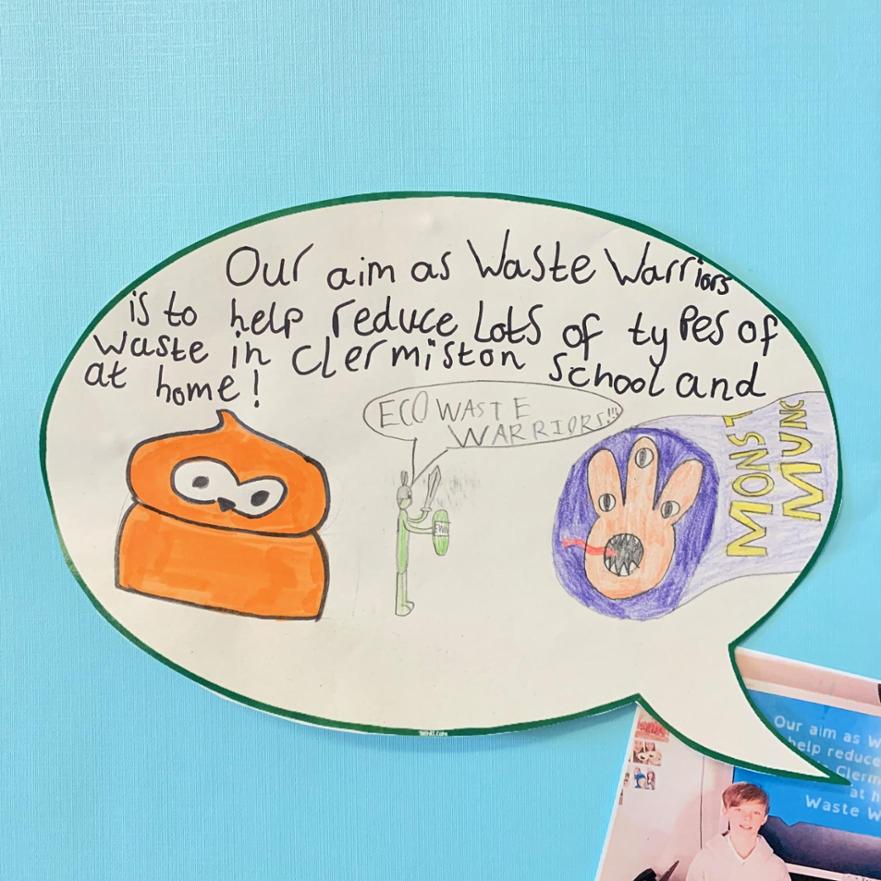 Our aim as Waste Warriors
is to help reduce Lots of types of
waste in Clermiston School and
at home!
ECO WASTE
WARRIORS!!!
MONST
MUNC
Our aim as W
help reduce
Clerm
at h
Waste W